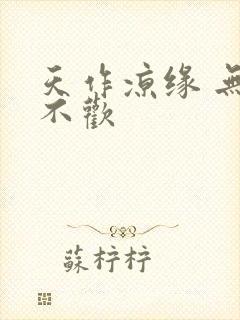 天作凉缘 無
不歡
蘇柠柠